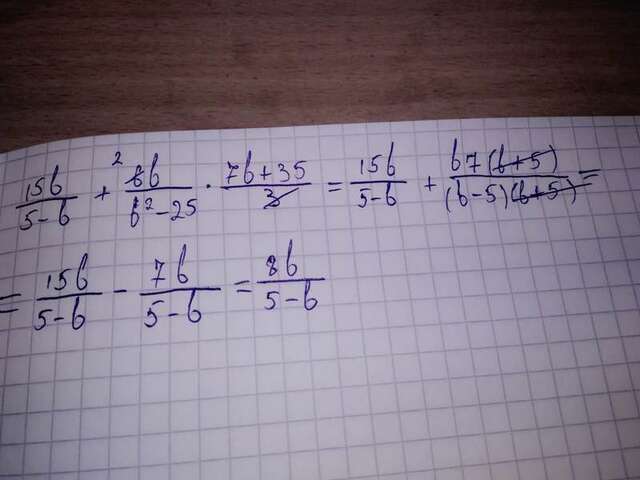 15b/(5-b) + ²6b/(b²-25) · (7b+35)/3 = 15b/(5-b) + b7(b+5)/((b-5)(b+5)) =
= 15b/(5-b) - 7b/(5-b) = 8b/(5-b)